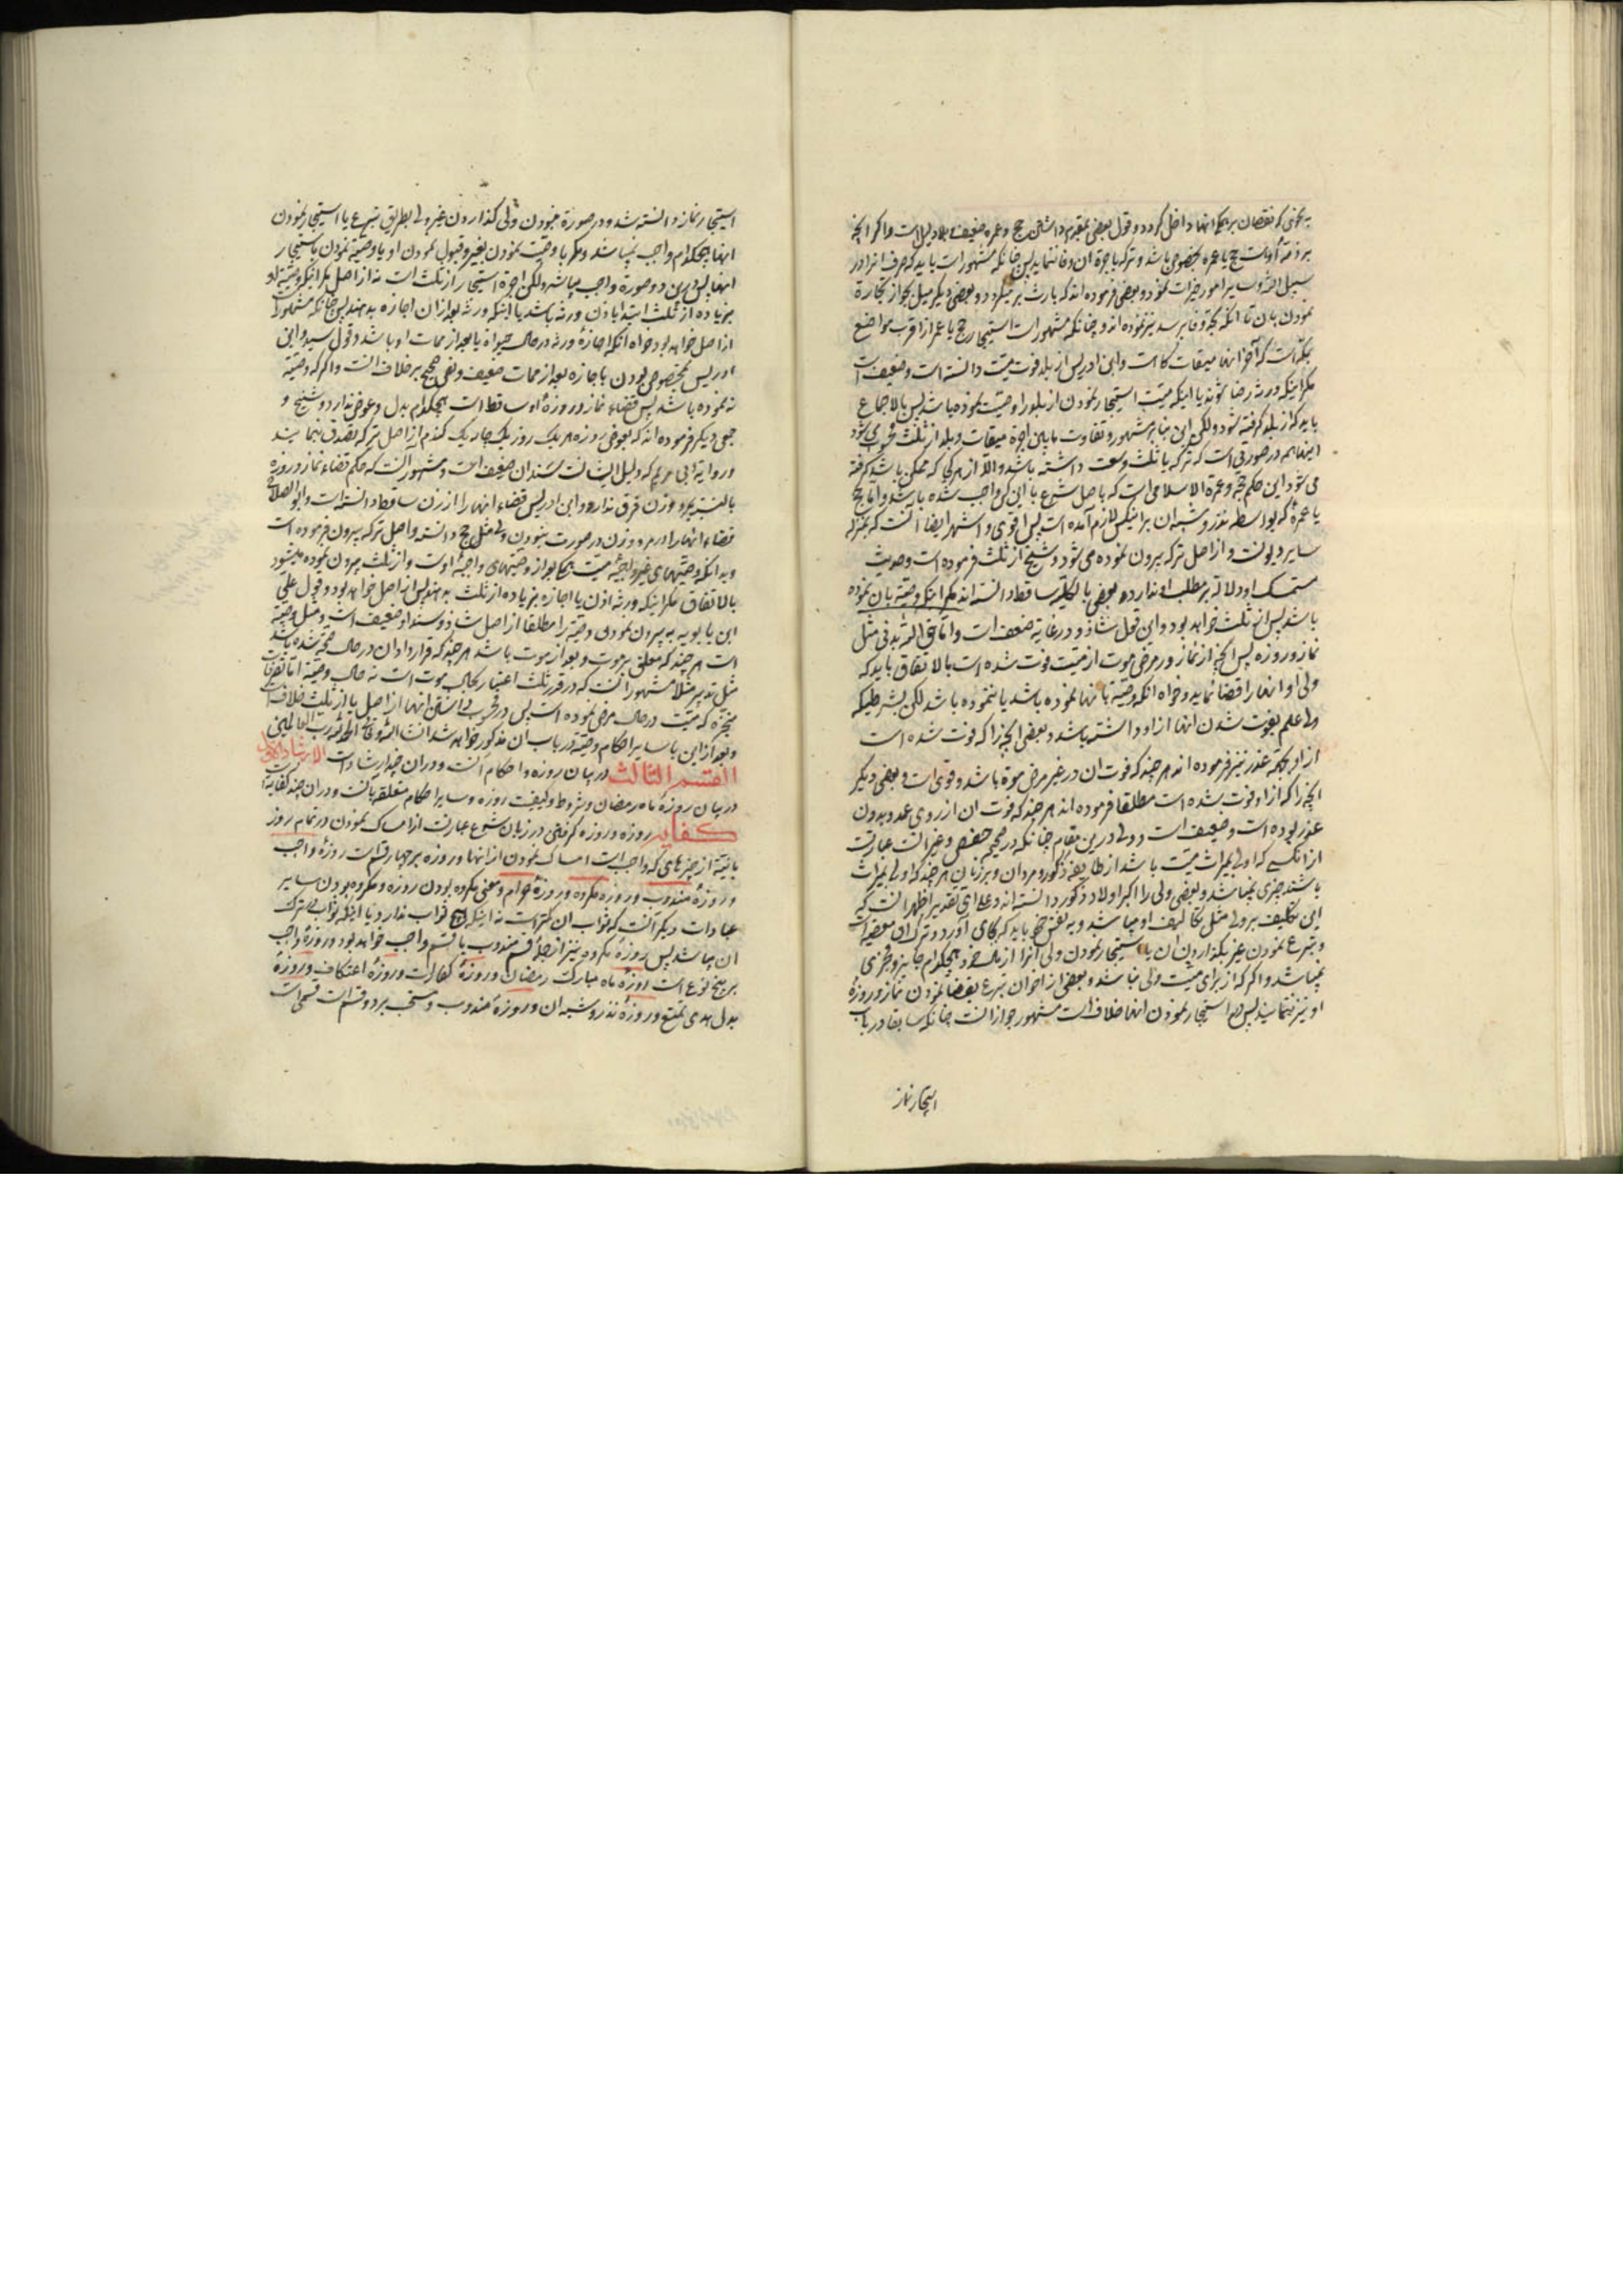 به نحوی که نقصان بر همکی انها داخل کردد و قول بعضی بتقدیم داشتن حج و عمره ضعیف و بلا دلیل است و اکر انچه
بر ذمهٔ اوست حج یا عمره بخصوص باشد و ترکه باجرة ان وفا ننماید پس چنانکه مشهور است باید که صرف انرا در
سبیل الله و سایر امور خیرات نمود و بعضی فرموده اند که بارث بر میکردد و بعضی دیکر میل بجواز تجارة
نمودن بان تا انکه بحج وفا برسد نیز نموده اند و چنانکه مشهور است استیجار حج یا عمره از اقرب مواضع
بمکه است که آخر انها میقات کاه است و ابن ادریس از بلد فوت میت دانسته است و ضعیف است
مکر اینکه ورثه رضا شوند یا اینکه میت استیجار نمودن از بلد را وصیت نموده باشد پس بالاجماع
باید که از بلد کرفته شود ولکن این بنا بر مشهور و تفاوت مابین اجرة میقات و بلد از ثلث محسوب می شود
اینها هم در صورتی است که ترکه یا ثلث وسعت داشته باشد و الا از هر کجا که ممکن باشد کرفته
می شود این حکم حج و عمرة الاسلامی است که باصل شرع با این کس واجب شده باشد و اما حج
یا عمرهٔ که بواسطه نذر و شبه ان بر اینکس لازم آمده است پس اقوی و اشهر ایضا آنست که بمنزله
سایر دیونست و از اصل ترکه بیرون نموده می شود و شیخ از ثلث فرموده است و حدیث
متمسک او دلالة بر مطلب او ندارد و بعضی بالکلیه ساقط دانسته اند مکر اینکه وصیة بان نموده
باشد پس از ثلث خواهد بود و این قول شاذ و در غایة ضعف است و اما حق الله بدنی مثل
نماز و روزه پس انچه از نماز در مرض موت از میت فوت شده است بالاتفاق باید که
ولی او انها را قضا نماید و خواه انکه وصیة بانها نموده باشد یا ننموده باشد لکن بشرطیکه
ولی علم بفوت شدن انها از او داشته باشد و بعضی انچه را که فوت شده است
از او بجهة عذر نیز فرموده اند هر چند که فوت ان در غیر مرض موة باشد و قوی است و بعضی دیکر
انچه را که از او فوت شده است مطلقا فرموده اند هر چند که فوت ان از روی عمد و بدون
عذر بوده است و ضعیف است و ولی درین مقام چنانکه در صحیحه حفص و غیر انست عبارتست
از انکسی که اولی بمیراث میت باشد از طایفه ذکور و مردان و بر زنان هر چند که اولی بمیراث
باشند چیزی نمیباشد و بعضی ولی را اکبر اولاد ذکور دانسته اند و علی ای تقدیر اظهر انست که
این تکلیف بر ولی مثل تکالیف او میباشد و به نفس خود باید که بجای آورد و ترک ان معصیة است
و تبرع نمودن غیر بکذاردن ان یا استیجار نمودن ولی انرا از نفس خود هیچکدام جایز و مجزی
نمیباشد و اکر که از برای میت ولی نباشد و بعضی از اخوان تبرع بقضا نمودن نماز و روزهٔ
او نیز ننمایند پس در استیجار نمودن انها خلاف است مشهور جواز انست چنانکه سابقا در باب
استیجار نماز
استیجار نماز دانسته شد و در صورة نبودن ولی کذاردن غیر ولی بطریق تبرع یا استیجار نمودن
انها هیچکدام واجب نمیباشد مکر با وصیت نمودن بغیر و قبول نمودن او یا وصیة نمودن باستیجار
انها پس درین دو صورة واجب میباشد ولکن اجرة استیجار از ثلث است نه از اصل مکر اینکه وصیة او
بزیاده از ثلث ابتدا باذن ورثه باشد یا اینکه ورثه بعد از ان اجازه بدهند پس چنانکه مشهور است
از اصل خواهد بود خواه انکه اجازهٔ ورثه در حال حیوة یا بعد از ممات او باشد و قول سید و ابن
ادریس بمخصوص بودن باجازه بعد از ممات ضعیف و نص صحیح بر خلاف انست و اکر که وصیة
ننموده باشد پس قضاء نماز و روزهٔ او ساقط است هیچکدام بدل و عوض ندارد و شیخ و
جمعی دیکر فرموده اند که بعوض روزه هر یک روز یک چاریک کندم از اصل ترکه تصدق نمایند
و روایة ابی مریم که دلیل ایشانست سند ان ضعیف است و مشهور انست که حکم قضاء نماز و روزه
بالنسبة بمرد و زن فرق ندارد و ابن ادریس قضاء انها را از زن ساقط دانسته است و ابو الصلاح
قضاء انها را در مرد و زن در صورت نبودن ولی مثل حج دانسته و از اصل ترکه بیرون فرموده است
و بدانکه وصیتهای غیر واجبهٔ میت همکی بعد از وصیتهای واجبهٔ اوست و از ثلث بیرون نموده میشود
بالاتفاق مکر اینکه ورثه اذن یا اجازه بزیاده از ثلث بدهند پس از اصل خواهد بود و قول علی
ابن بابویه به بیرون نمودن وصیة را مطلقا از اصل شاذ و سند او ضعیف است و مثل وصیة
است هر چند که معلق بر موت و بعد از موت باشد هر چند که قرارداد ان در حال صحة شده باشد
مثل تدبیر مثلا مشهور انست که در قدر ثلث اعتبار بحال موت است نه حال وصیة اما تصرفات
منجزه که میت در حال مرض نموده است پس در محسوب داشتن انها از اصل یا از ثلث خلافست
و بعد از این با سایر احکام وصیة در باب ان مذکور خواهد شد انشا الله و الحمد لله رب العالمین
القسم الثالث در بیان روزه و احکام آنست و در ان چند ارشاد است الارشاد الاول
در بیان روزهٔ ماه رمضان و شروط و کیفیت روزه و سایر احکام متعلقه بآنست و در ان چند کفایة است
کفایه روزه و روزه کرفتن در زبان شرع عبارتست از امساک نمودن در تمام روز
با نیة از چیزهای که واجب است امساک نمودن از انها و روزه بر چهار قسم است روزهٔ واجب
و روزهٔ مندوب و روزه مکروه و روزهٔ حرام و معنی مکروه بودن روزه و مکروه بودن سایر
عبادات دیکر آنست که ثواب ان کمتر است نه اینکه هیچ ثواب ندارد یا اینکه ثواب در ترک
ان میباشد پس روزهٔ مکروه نیز از جملهٔ قسم مندوب یا قسم واجب خواهد بود و روزهٔ واجب
بر پنج نوع است روزهٔ ماه مبارک رمضان و روزهٔ کفارات و روزهٔ اعتکاف و روزهٔ
بدل هدی تمتع و روزهٔ نذر و شبه ان و روزهٔ مندوب و مستحب بر دو قسم است قسمی است